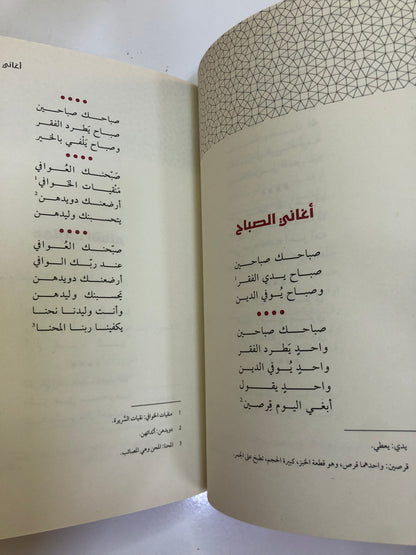 أغاني الصباح
صباحك صباحين
صباح يدي الفقر¹
وصباح يُوفي الدين
صباحك صباحين
واحدٍ يَطرد الفقر
واحدٍ يُوفي الدين
واحدٍ يقول
أبغي اليوم قِرصين²
يدي: يعطي.
قرصين: واحدهما قرص، وهو قطعة الخبز، كبيرة الحجم، تطبخ على الجمر.
أغاني
صباحك صباحين
صباح يَطرد الفقر
وصباح يَلْفي بالخير
صَبّحنك العُوافي
منقيات الخوافي¹
أرضعنك دويدهن²
يتحسبنك وليدهن
صبّحنك العُوافي
عند ربّك الوافي
أرضعنك دويدهن
يحسبنك وليدهن
وأنت وليدنا نحنا
يكفينا ربنا المحنا³
1 منقيات الخوافي: نقيات السَّريرة.
2 دويدهن: أثدائهن.
3 المحنا: المحن وهي المصائب.